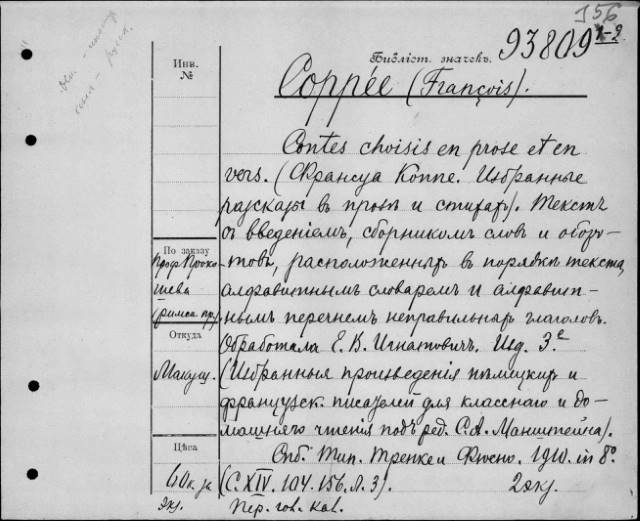 156
93809 1-2
Инв.
№
Библіот. значекъ.
Coppée (François).
Contes choisis en prose et en
vers. (Франсуа Коппе. Избранные
разсказы въ прозѣ и стихахъ). Текстъ
съ введеніемъ, сборникомъ словъ и оборо-
товъ, расположенныхъ въ порядкѣ текста,
алфавитнымъ словаремъ и алфавит-
нымъ перечнемъ неправильныхъ глаголовъ.
Обработала Е. В. Игнатовичъ. Изд. 3.е
(Избранныя произведенія нѣмецкихъ и
французск. писателей для класснаго и до-
машняго чтенія подъ ред. С. А. Манштейна).
Спб. Тип. Тренке и Фюсно. 1910. in 8°.
(С. XIV. 104. 156. Л. 3). 2 экз.
Пер. гов. кав.
По заказу
проф. Проко-
шева
Откуда
Макуш.
Цѣна
60 к. за
экз.